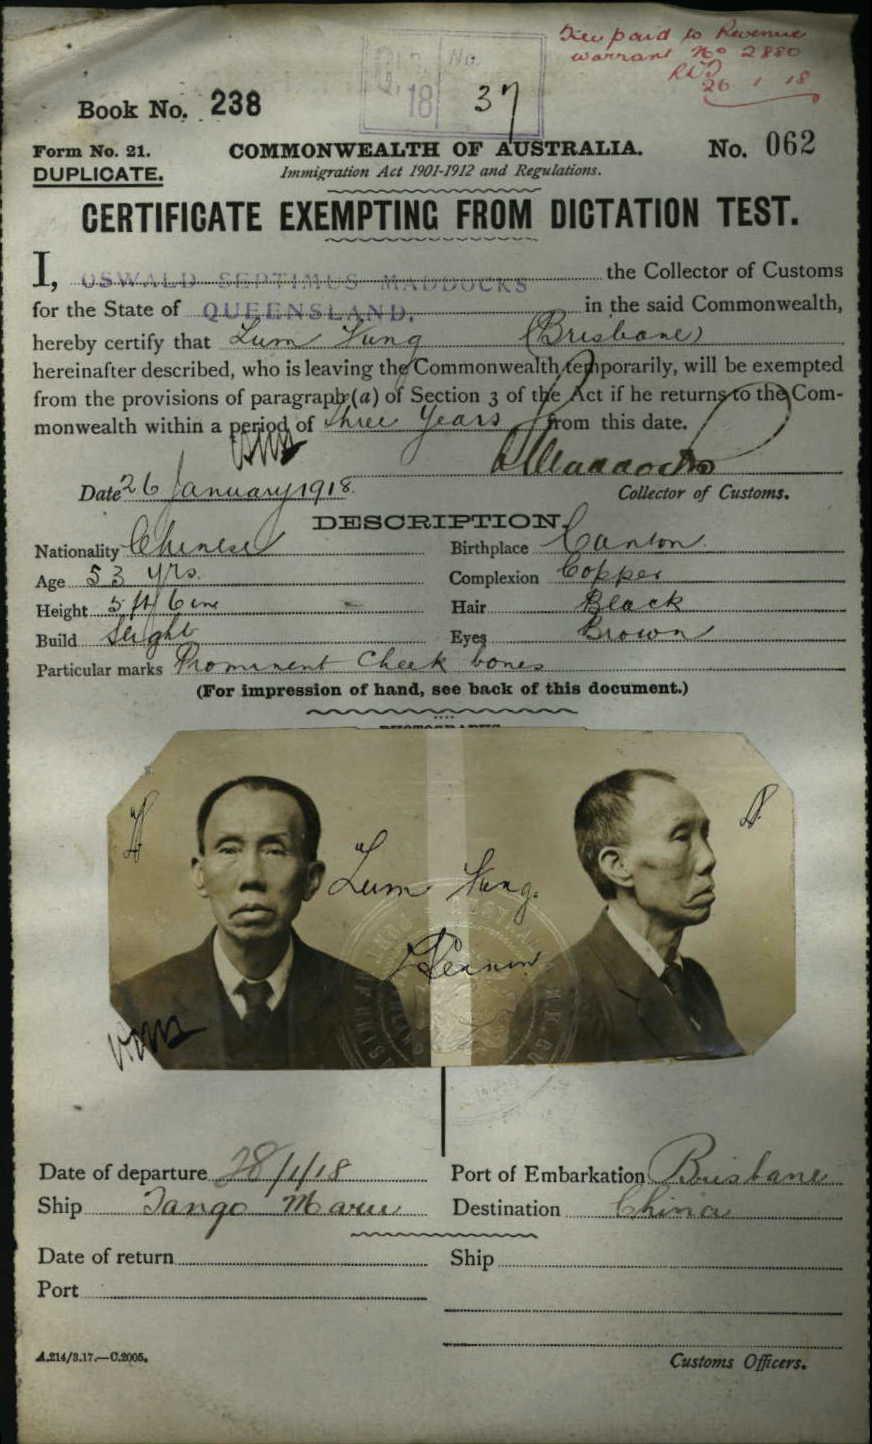 Fee paid to Revenue
warrant No 2880
26 1 18
No.
18 37
Book No. 238
Form No. 21.
COMMONWEALTH OF AUSTRALIA.
No. 062
DUPLICATE.
Immigration Act 1901-1912 and Regulations.
CERTIFICATE EXEMPTING FROM DICTATION TEST.
I, OSWALD SEPTIMUS MADDOCKS the Collector of Customs
for the State of QUEENSLAND, in the said Commonwealth,
hereby certify that Lum Fung (Brisbane)
hereinafter described, who is leaving the Commonwealth temporarily, will be exempted
from the provisions of paragraph (a) of Section 3 of the Act if he returns to the Com-
monwealth within a period of three years from this date.
Maddocks
Date 26 January 1918. Collector of Customs.
DESCRIPTION.
Nationality Chinese Birthplace Canton
Age 53 yrs. Complexion Copper
Height 5 ft 6 ins Hair Black
Build Slight Eyes Brown
Particular marks Prominent Cheek bones
(For impression of hand, see back of this document.)
PHOTOGRAPHS
Lum Fung.
Date of departure 28/1/18 Port of Embarkation Brisbane
Ship Tango Maru Destination China
Date of return Ship
Port
A.214/3.17.—C.2005.
Customs Officers.